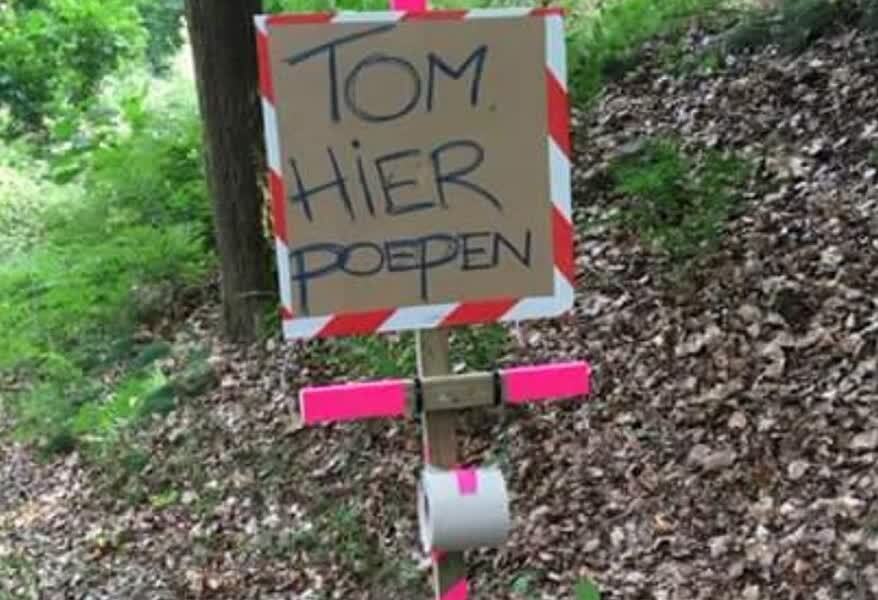 TOM.
HiER
POEPEN